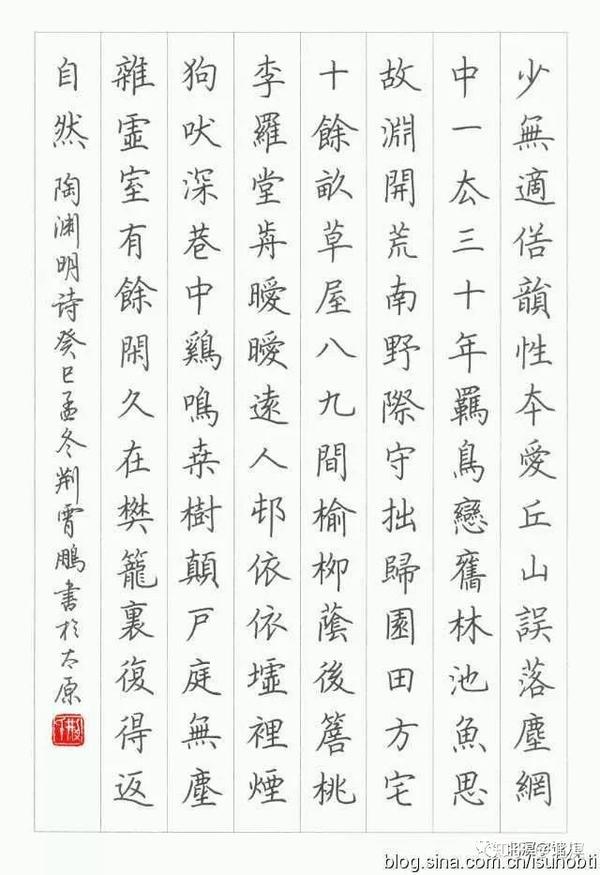 少無適俗韻性本愛丘山誤落塵網
中一去三十年羈鳥戀舊林池魚思
故淵開荒南野際守拙歸園田方宅
十餘畝草屋八九間榆柳蔭後簷桃
李羅堂前曖曖遠人邨依依墟裡煙
狗吠深巷中鷄鳴桒樹顛戶庭無塵
雜虛室有餘閑久在樊籠裏復得返
自然 陶渊明詩癸巳孟冬荆霄鵬書於太原
blog.sina.com.cn/lsuhobti